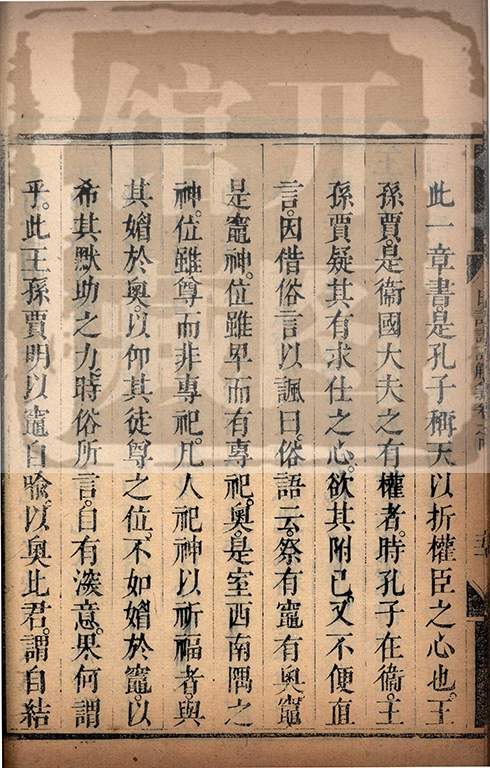 此一章書是孔子稱天以折權臣之心也。王
孫賈。是衞國大夫之有權者。時孔子在衞。王
孫賈疑其有求仕之心。欲其附己。又不便直
言。因借俗言以諷曰。俗語云。祭有竈有奧。竈
是竈神。位雖卑而有專祀。奧。是室西南隅之
神。位雖尊而非專祀。凡人祀神以祈福者。與
其媚於奧。以仰其徒尊之位。不如媚於竈。以
希其默助之力。時俗所言。自有深意。果何謂
乎。此王孫賈明以竈自喻。以奧比君。謂自結